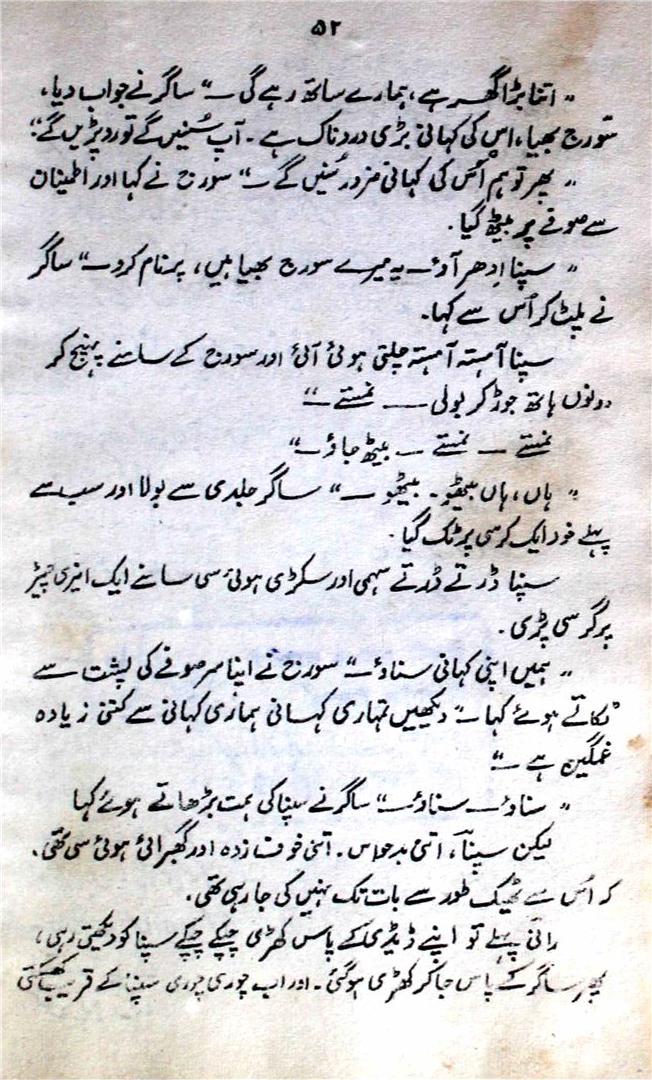 ۵۲
"اتنا بڑا گھر ہے، ہمارے ساتھ رہے گی ــ" ساگر نے جواب دیا،
سورج بھیا، اس کی کہانی بڑی دردناک ہے ۔ آپ سُنیں گے تو رو پڑیں گے"
"پھر تو ہم اُس کی کہانی ضرور سُنیں گے ــ" سورج نے کہا اور اطمینان
سے صوفے پر بیٹھ گیا ۔
"سپنا اِدھر آؤ ــ یہ میرے سورج بھیا ہیں، پرنام کرو ــ" ساگر
نے پلٹ کر اُس سے کہا۔
سپنا آہستہ آہستہ چلتی ہوئی آئی اور سورج کے سامنے پہنچ کر
دونوں ہاتھ جوڑ کر بولی ــــ نمستے ــ"
نمستے ــ نمستے ــ بیٹھ جاؤ ــ"
"ہاں، ہاں بیٹھو ۔ بیٹھو ــ" ساگر جلدی سے بولا اور سب سے
پہلے خود ایک کرسی پر ٹک گیا ۔
سپنا ڈرتے ڈرتے سہمی اور سکڑی ہوئی سی سامنے ایک ایزی چیئر
پر گر سی پڑی ۔
"ہمیں اپنی کہانی سناؤ ــ" سورج نے اپنا سر صوفے کی پشت سے
ٹکاتے ہوئے کہا ــ" دیکھیں تمہاری کہانی ہماری کہانی سے کتنی زیادہ
غمگین ہے ــ"
"سناؤ ــ سناؤ ــ" ساگر نے سپنا کی ہمت بڑھاتے ہوئے کہا
لیکن سپنا، اتنی بدحواس ۔ اتنی خوف زدہ اور گھبرائی ہوئی سی تھی ۔
کہ اُس سے ٹھیک طور سے بات تک نہیں کی جا رہی تھی ۔
رانی پہلے تو اپنے ڈیڈی کے پاس کھڑی چپکے چپکے سپنا کو دیکھتی رہی ،
پھر ساگر کے پاس جا کر کھڑی ہو گئی ۔ اور اب چوری چوری سپنا کے قریب کھسکتی